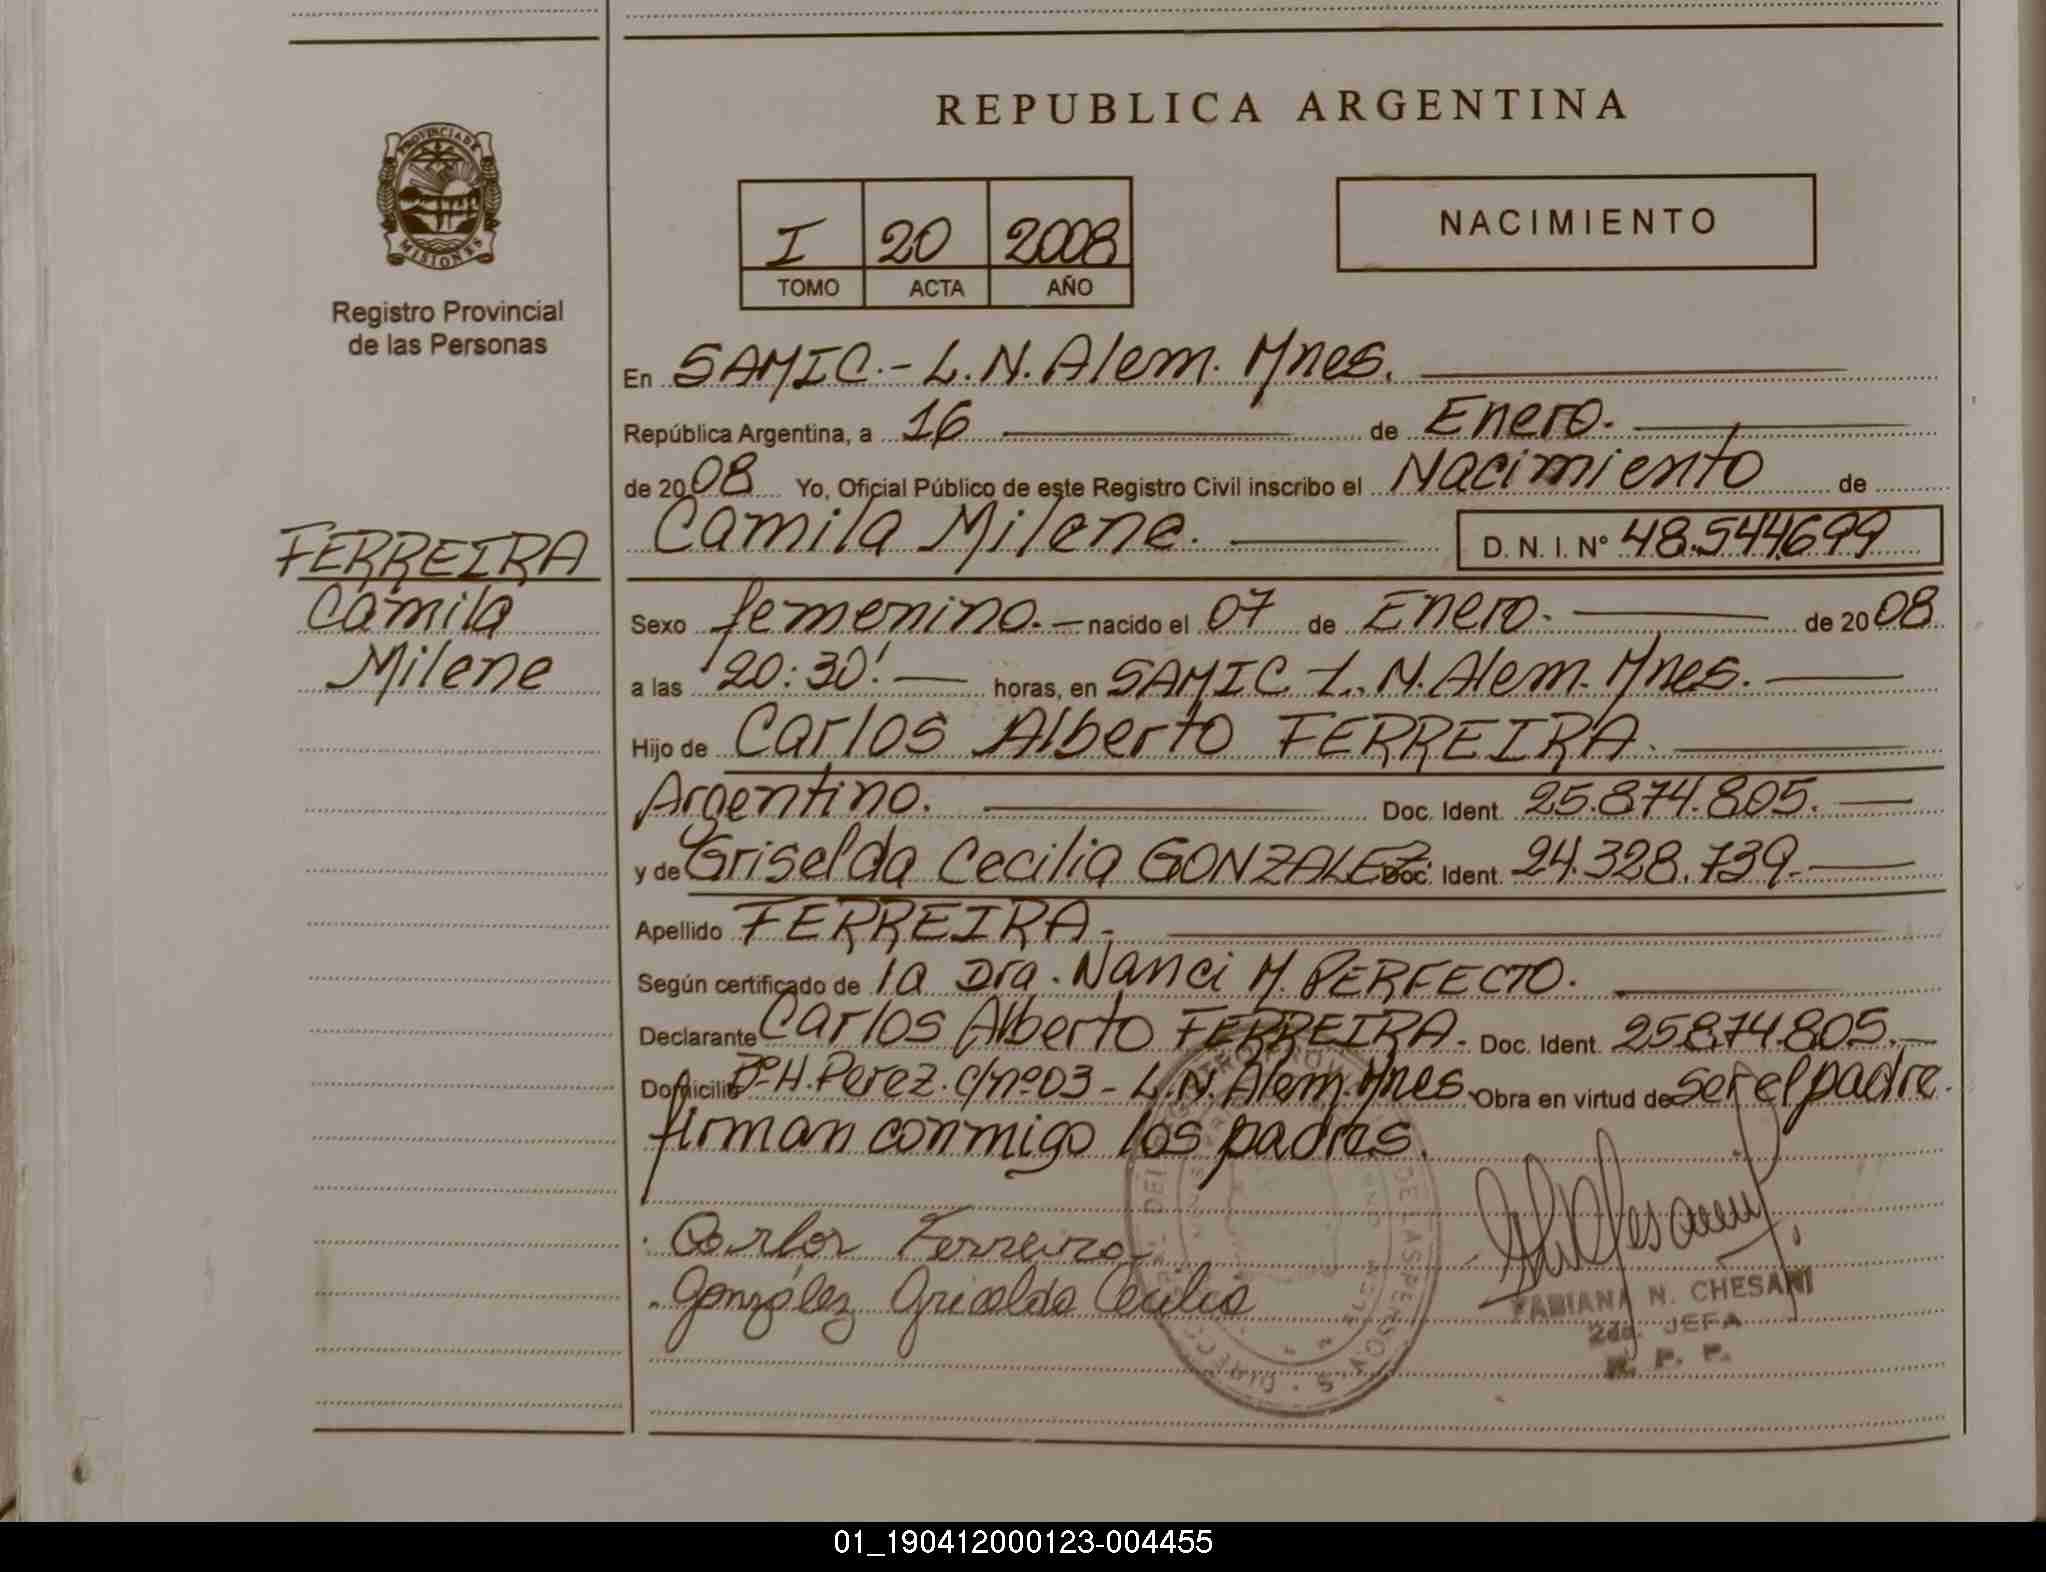 REPUBLICA ARGENTINA
PROVINCIA DE
MISIONES
Registro Provincial
de las Personas
I 20 2008
TOMO ACTA AÑO
NACIMIENTO
En SAMIC.- L.N. Alem. Mnes.
República Argentina, a 16 de Enero.
de 2008 Yo, Oficial Público de este Registro Civil inscribo el Nacimiento de
Camila Milene. D. N. I. N° 48.544.699
FERREIRA
Camila
Milene
Sexo femenino.- nacido el 07 de Enero. de 2008
a las 20:30'. horas, en SAMIC L.N. Alem. Mnes.
Hijo de Carlos Alberto FERREIRA.
Argentino. Doc. Ident. 25.874.805.
y de Griselda Cecilia GONZALEZ. Doc. Ident. 24.328.739.-
Apellido FERREIRA.-
Según certificado de la Dra. Nanci M. PERFECTO.
Declarante Carlos Alberto FERREIRA. Doc. Ident. 25.874.805.-
Domicilio Bº H. Perez. c/nº 03 - L.N. Alem. Mnes. Obra en virtud de ser el padre.
firman conmigo los padres.
Carlos Ferreira
González Griselda Cecilia
FABIANA N. CHESANI
2da. JEFA
R. P. P.
01_190412000123-004455